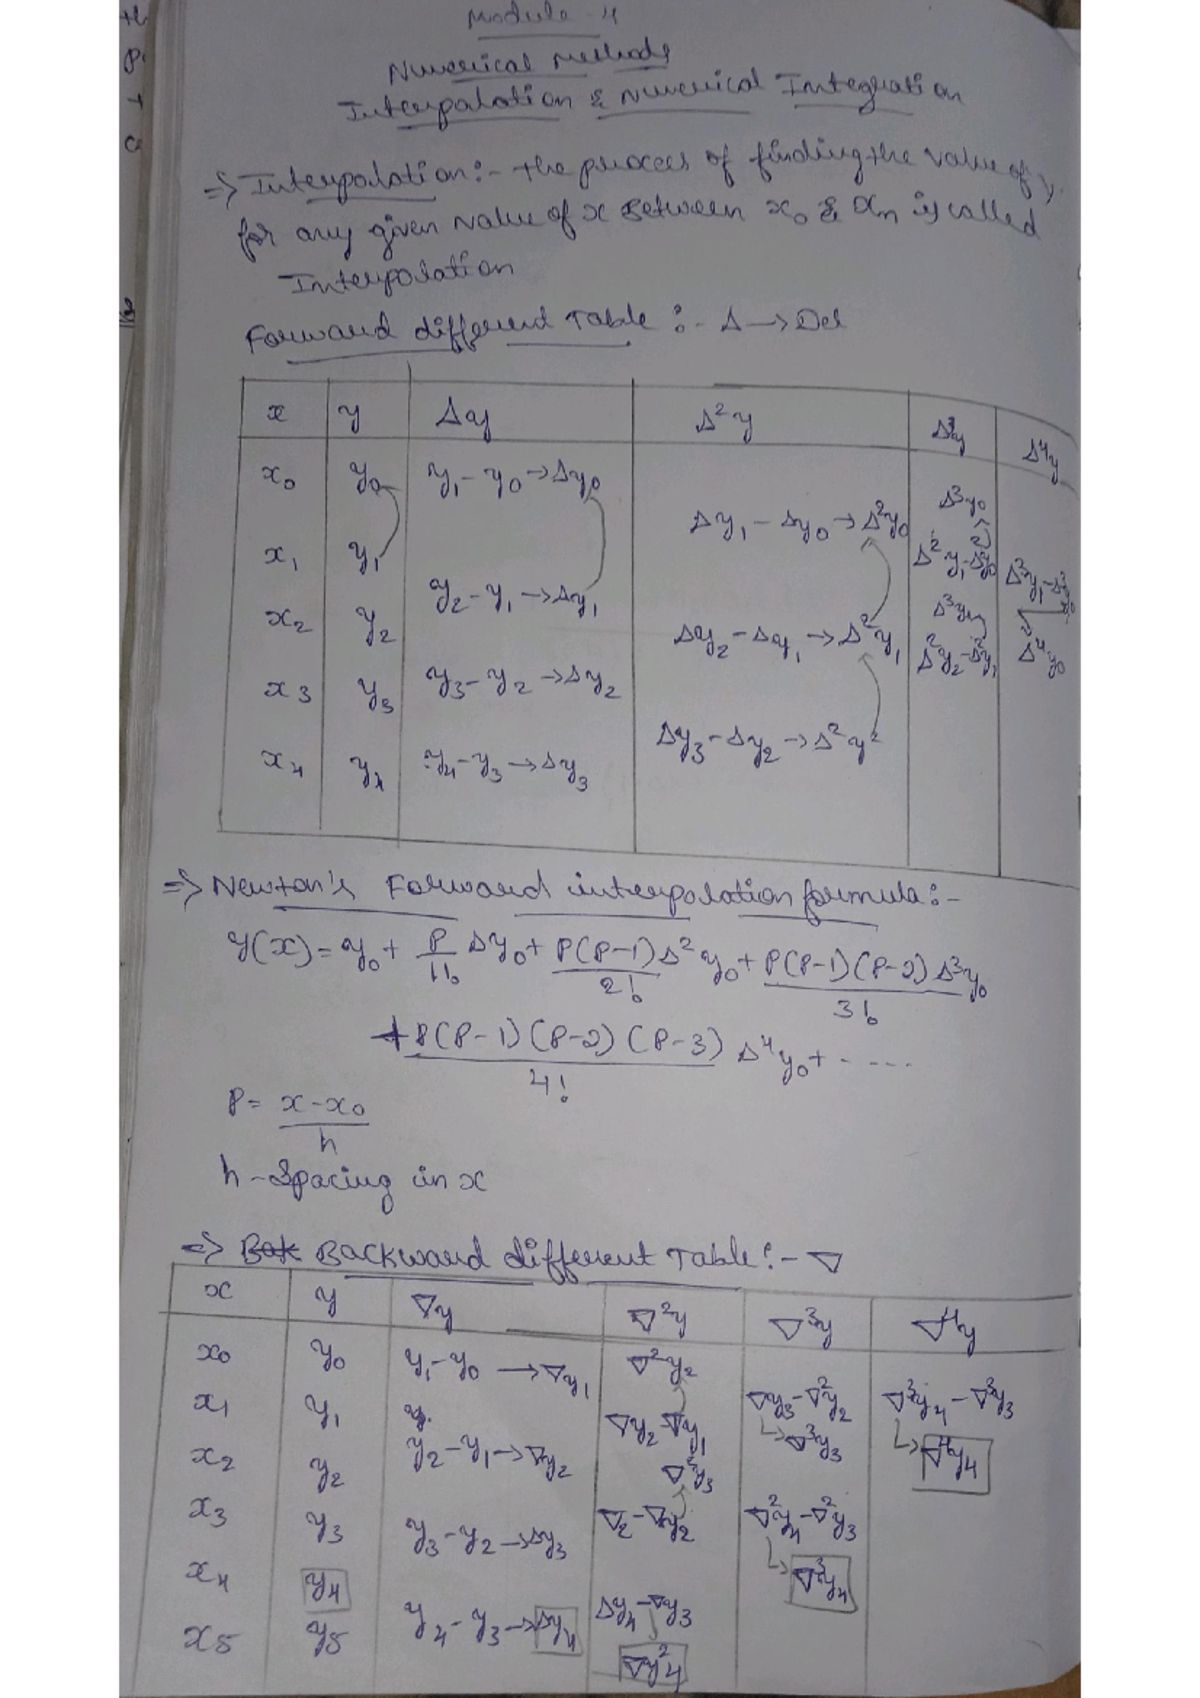 Module - 4
Numerical Methods
Interpolation & Numerical Integration
⇒ Interpolation:- the process of finding the value of y
for any given value of x Between x₀ & xₙ is called
Interpolation
Forward different Table :- Δ → Del
x y Δy Δ²y Δ³y Δ⁴y
x₀ y₀ y₁ - y₀ → Δy₀ Δ³y₀
Δy₁ - Δy₀ → Δ²y₀
x₁ y₁ Δ²y₁ - Δ²y₀ Δ³y₁ - Δ³y₀
y₂ - y₁ → Δy₁ Δ³y₁
x₂ y₂ Δy₂ - Δy₁ → Δ²y₁ Δ²y₂ - Δ²y₁ Δ⁴y₀
x₃ y₃ y₃ - y₂ → Δy₂
Δy₃ - Δy₂ → Δ²y²
x₄ y₄ y₄ - y₃ → Δy₃
⇒ Newton's Forward interpolation formula:-
y(x) = y₀ + P/1! Δy₀ + P(P-1)/2! Δ²y₀ + P(P-1)(P-2)/3! Δ³y₀
+ P(P-1)(P-2)(P-3)/4! Δ⁴y₀ + - - - -
P = x - x₀/h
h - Spacing in x
⇒ Backward different Table:- ∇
x y ∇y ∇²y ∇³y ∇⁴y
x₀ y₀ y₁ - y₀ → ∇y₁ ∇²y₂
x₁ y₁ ∇y₂ - ∇y₁ ∇y₃ - ∇²y₂ ∇³y₄ - ∇³y₃
y₂ - y₁ → ∇y₂ ∇³y₃ ∇⁴y₄
x₂ y₂ ∇²y₃
x₃ y₃ y₃ - y₂ → Δy₃ ∇₂ - ∇y₂ ∇²y₄ - ∇²y₃
x₄ y₄ ∇³y₄
y₄ - y₃ → Δy₄ Δy₄ - ∇y₃
x₅ y₅ ∇y²4